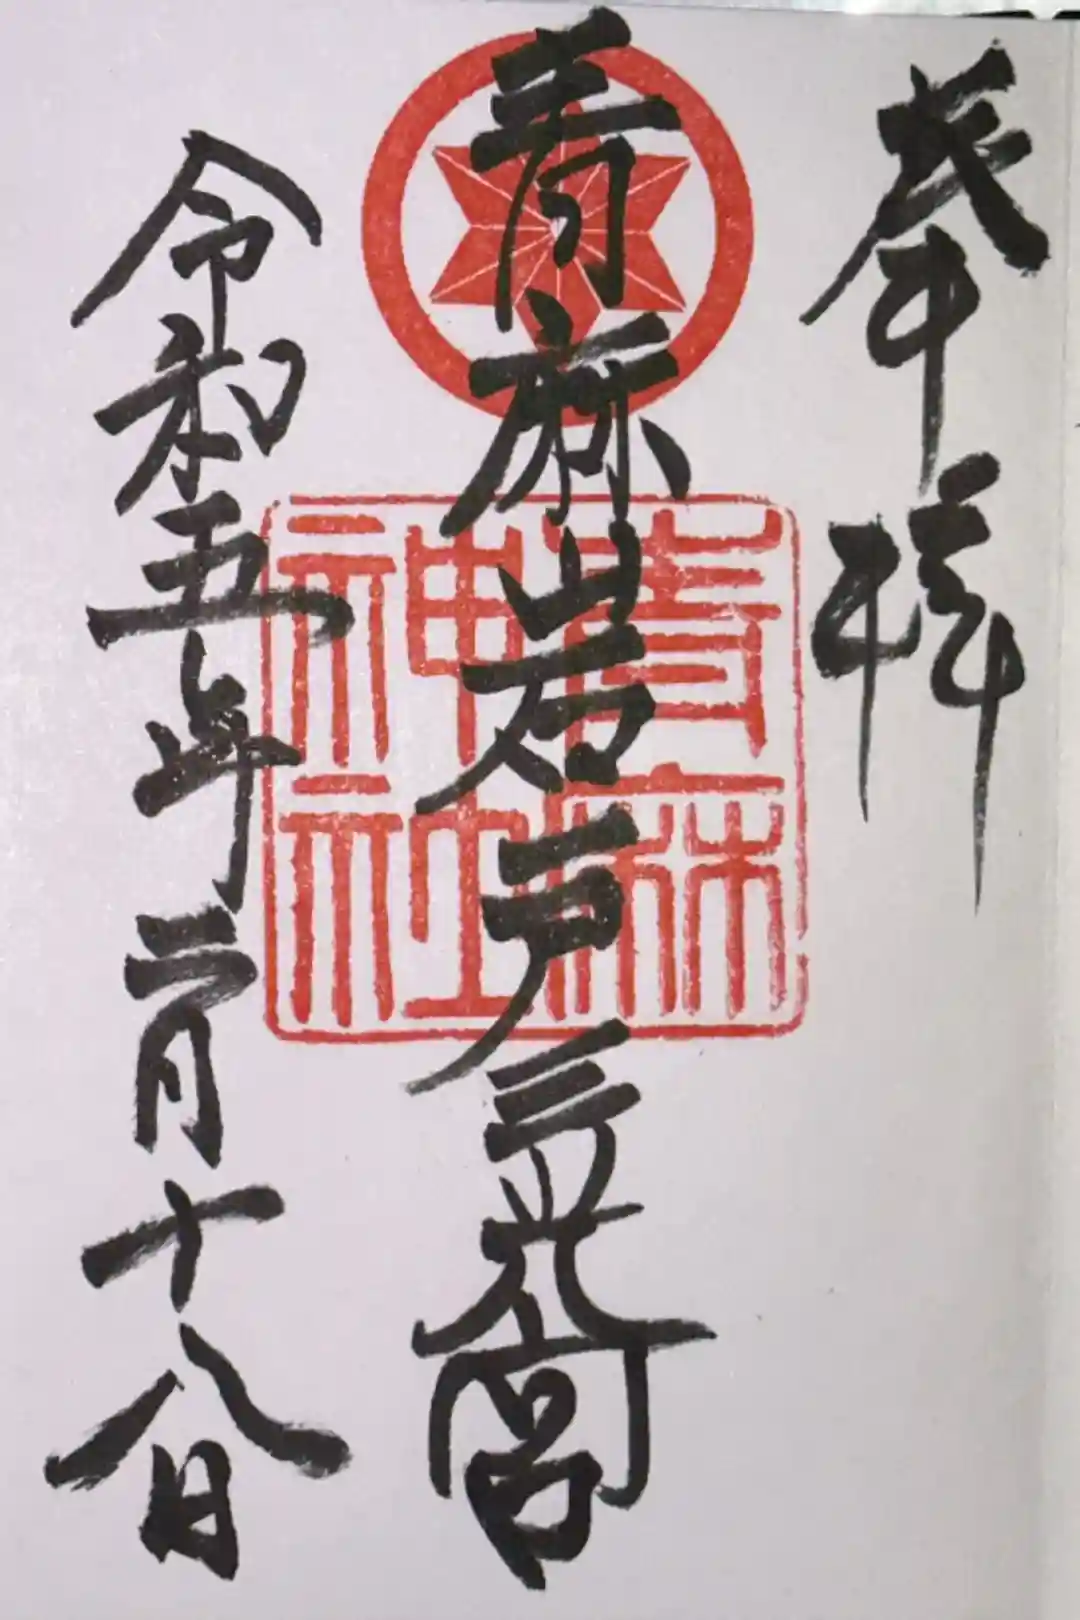 奉拝
青麻山岩戸三光宮
青麻
神社
令和五年二月十八日